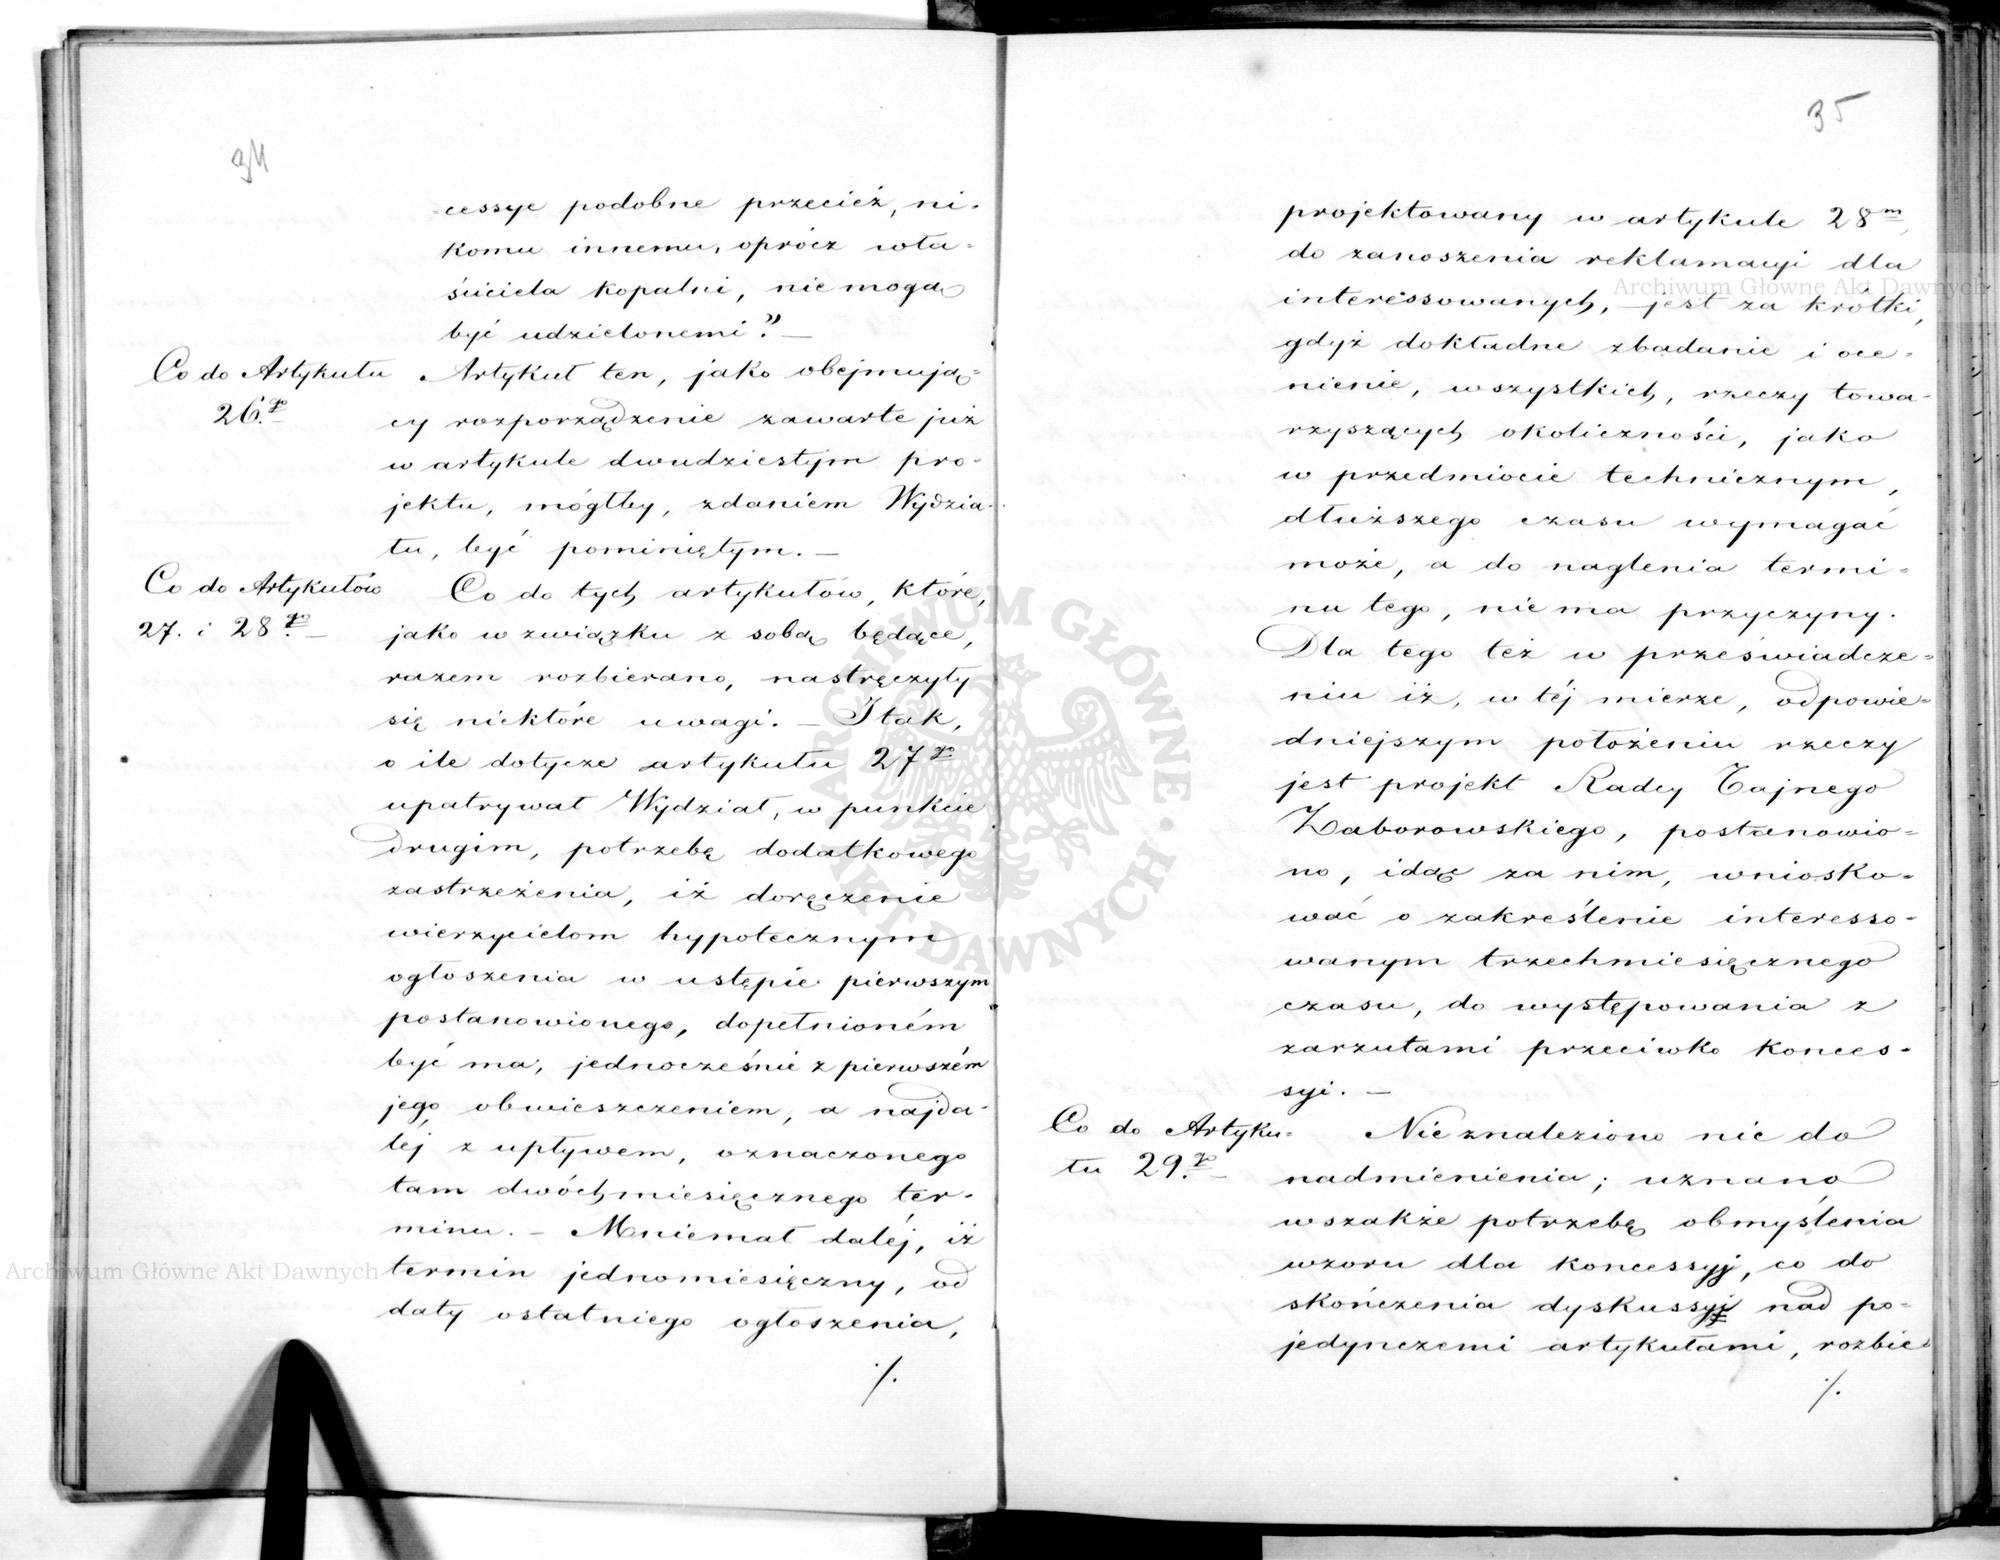 34
cessye podobne przecież, ni-
komu innemu, oprócz wła-
ściciela kopalni, nie mogą
być udzielonemi." —
Co do Artykułu
26.go
Artykuł ten, jako obejmują-
cy rozporządzenie zawarte już
w artykule dwudziestym pro-
jektu, mógłby, zdaniem Wydzia-
łu, być pominiętym. —
Co do Artykułów
27. i 28.go —
Co do tych artykułów, które,
jako w związku z sobą będące,
razem rozbierano, nastręczyły
się niektóre uwagi. — I tak,
o ile dotycze artykułu 27go
upatrywał Wydział, w punkcie
drugim, potrzebę dodatkowego
zastrzeżenia, iż doręczenie
wierzycielom hypotecznym
ogłoszenia w ustępie pierwszym
postanowionego, dopełnioném
być ma, jednocześnie z pierwszém
jego obwieszczeniem, a najda-
lej z upływem, oznaczonego
tam dwóchmiesięcznego ter-
minu. — Mniemał daléj, iż
termin jednomiesięczny, od
daty ostatniego ogłoszenia,
./.
35
projektowany w artykule 28m,
do zanoszenia reklamacyi dla
interessowanych, — jest za krótki,
gdyż dokładne zbadanie i oce-
nienie, wszystkich, rzeczy towa-
rzyszących okoliczności, jako
w przedmiocie technicznym,
dłuższego czasu wymagać
może, a do naglenia termi-
nu tego, nie ma przyczyny.
Dla tego też w przeświadcze-
niu iż, w téj mierze, odpowie-
dniejszym położeniu rzeczy
jest projekt Radcy Tajnego
Zaborowskiego, postanowio-
no, idąc za nim, wniosko-
wać o zakreślenie interesso-
wanym trzechmiesięcznego
czasu, do występowania z
zarzutami przeciwko konces-
syi. —
Co do Artyku-
łu 29.go —
Nie znaleziono nic do
nadmienienia; uznano
wszakże potrzebę obmyślenia
wzoru dla koncessyj, co do
skończenia dyskussyi nad po-
jedynczemi artykułami, rozbie-
./.
Archiwum Główne Akt Dawnych
Archiwum Główne Akt Dawnych
ARCHIWUM GŁÓWNE • AKT DAWNYCH •